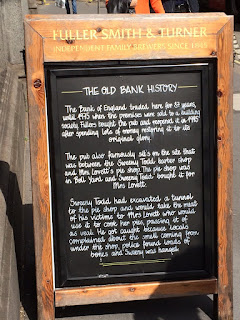 FULLER SMITH & TURNER
INDEPENDENT FAMILY BREWERS SINCE 1845
THE OLD BANK HISTORY
The Bank of England traded here for 87 years,
until 1975 when the premises were sold to a building
society. Fullers bought the pub and reopened it in 1995
after spending lots of money restoring it to its
original glory.
The pub also famously sits on the site that
was between the Sweeny Todd barber shop
and Mrs Lovett's pie shop. The pie shop was
in Bell Yard and Sweeny Todd bought it for
Mrs Lovett.
Sweeny Todd had excavated a tunnel
to the pie shop and would take the meat
of his victims to Mrs Lovett who would
use it to cook her pies, passing it off
as veal. He got caught because locals
complained about the smell coming from
under the shop, police found loads of
bones and Sweeny was hanged.